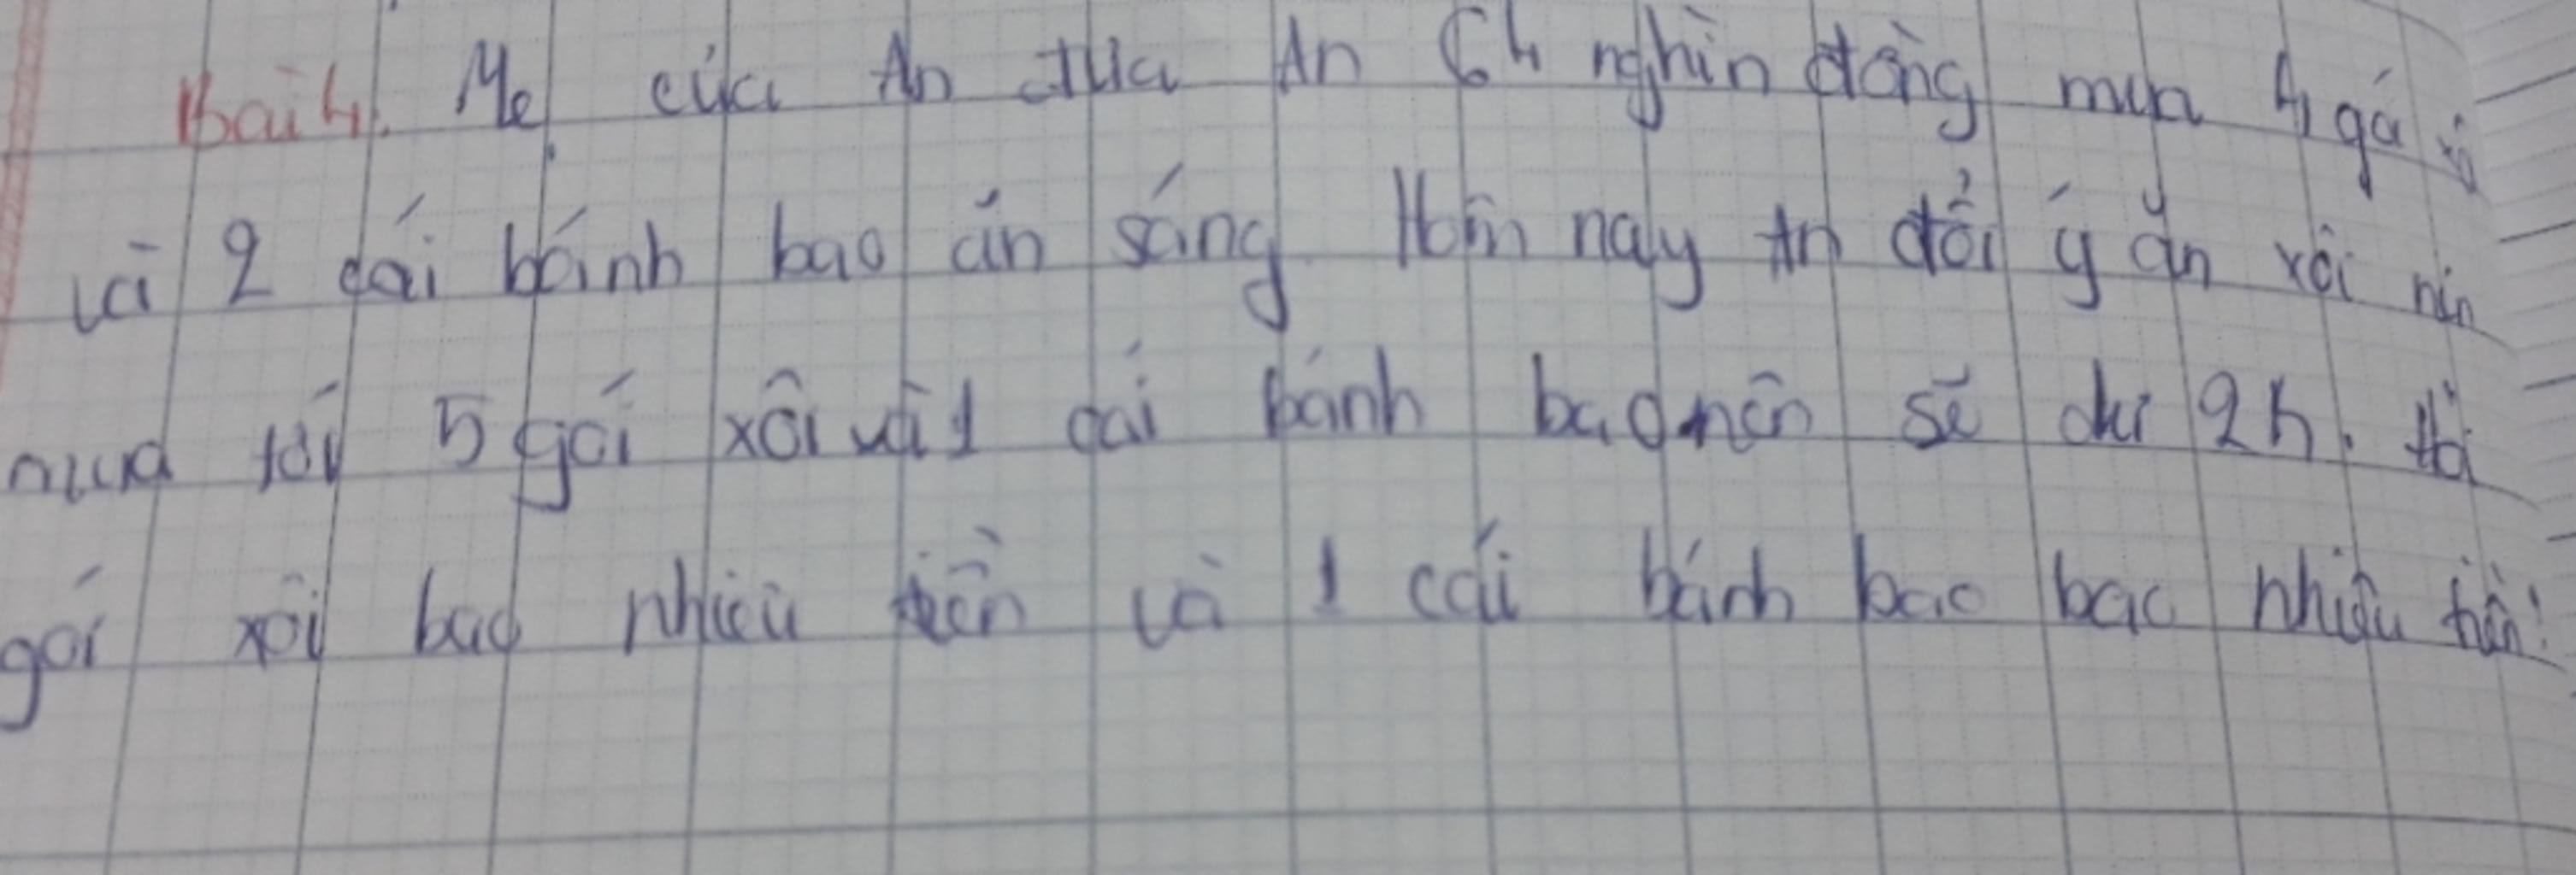 Bài 4. Mẹ của An đưa An 64 nghìn đồng mua 4 gói xôi
và 2 cái bánh bao ăn sáng. Hôm nay An đổi ý ăn xôi nên
mua tới 5 gói xôi và 1 cái bánh bao nên sẽ dư 2h. Hỏi
gói xôi bao nhiêu tiền và 1 cái bánh bao bao nhiêu tiền?